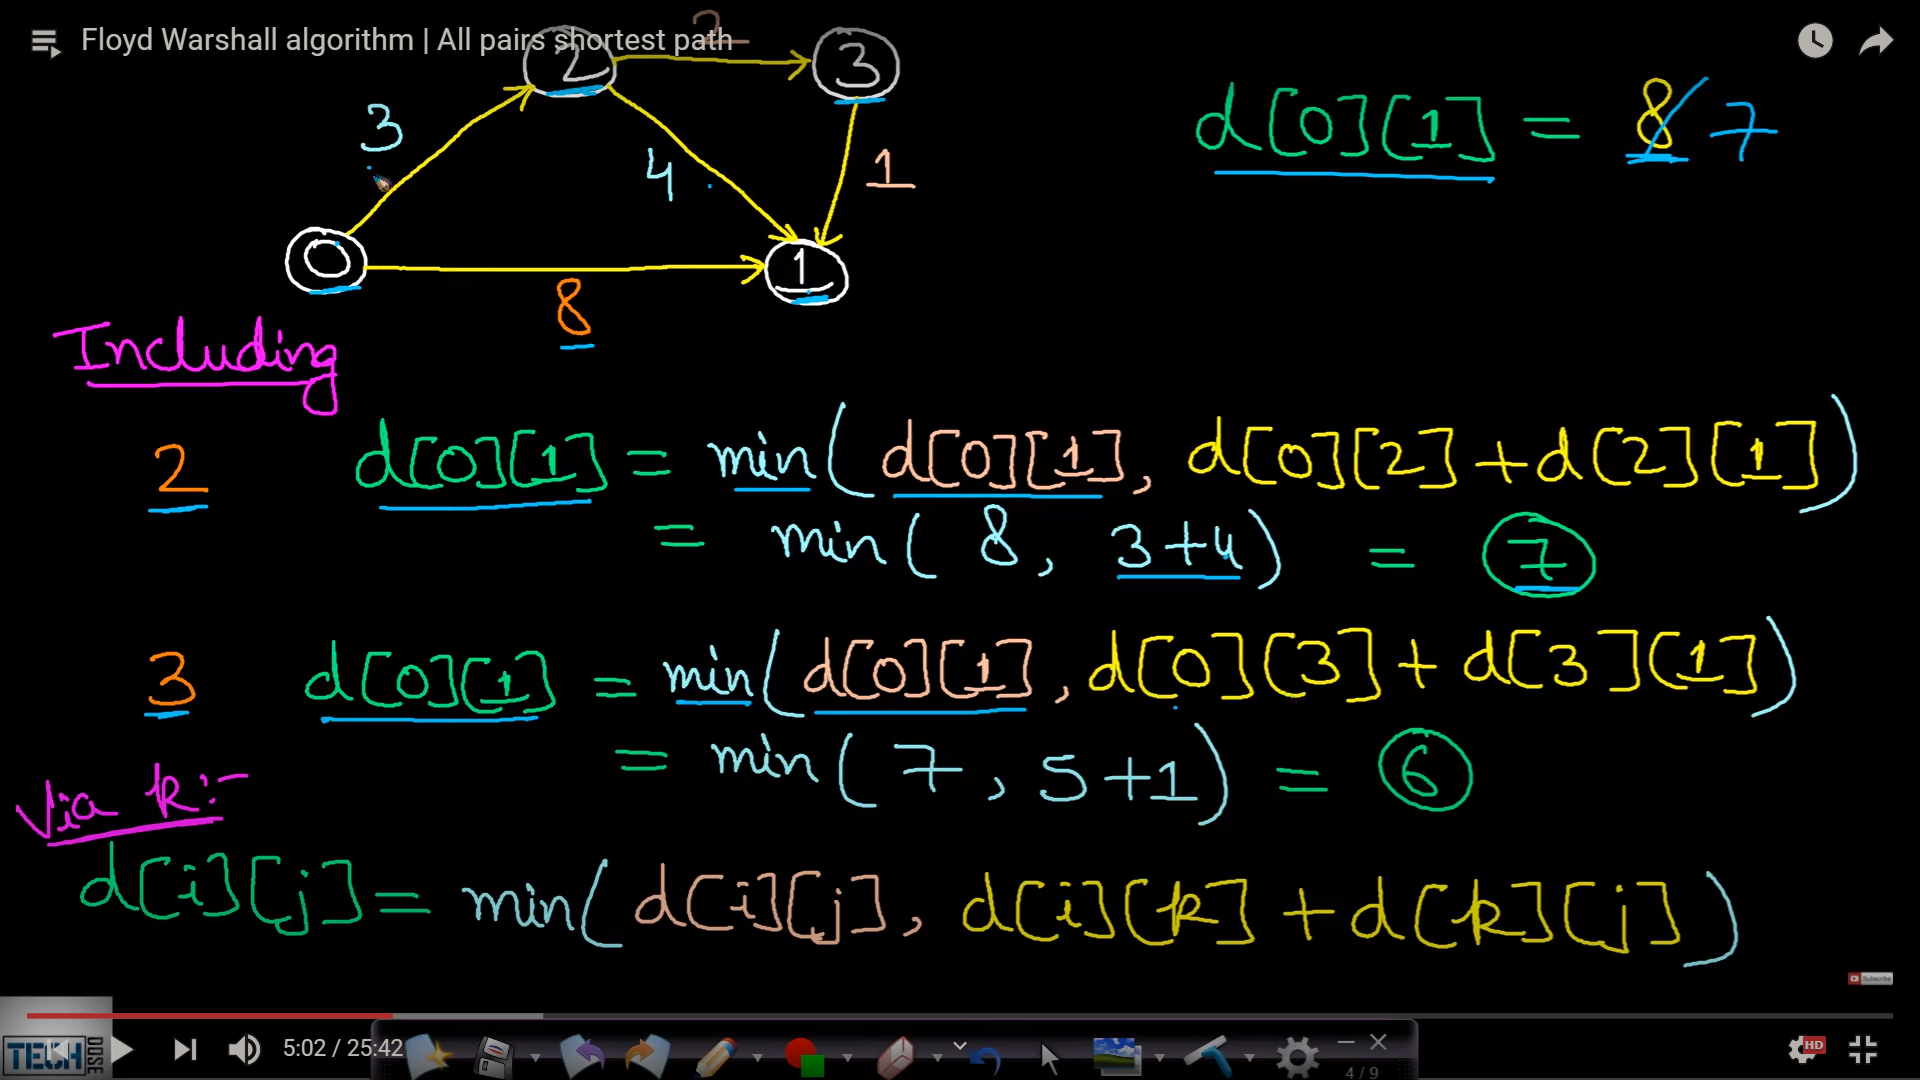 Floyd Warshall algorithm | All pairs shortest path
2
2
3
3
4
1
d[0][1] = 8 7
0
1
8
Including
2 d[0][1] = min(d[0][1], d[0][2]+d[2][1])
= min(8, 3+4) = 7
3 d[0][1] = min(d[0][1], d[0][3]+d[3][1])
= min(7, 5+1) = 6
Via k:-
d[i][j] = min(d[i][j], d[i][k]+d[k][j])
Subscribe
TECH DOSE
5:02 / 25:42
HD
4 / 9